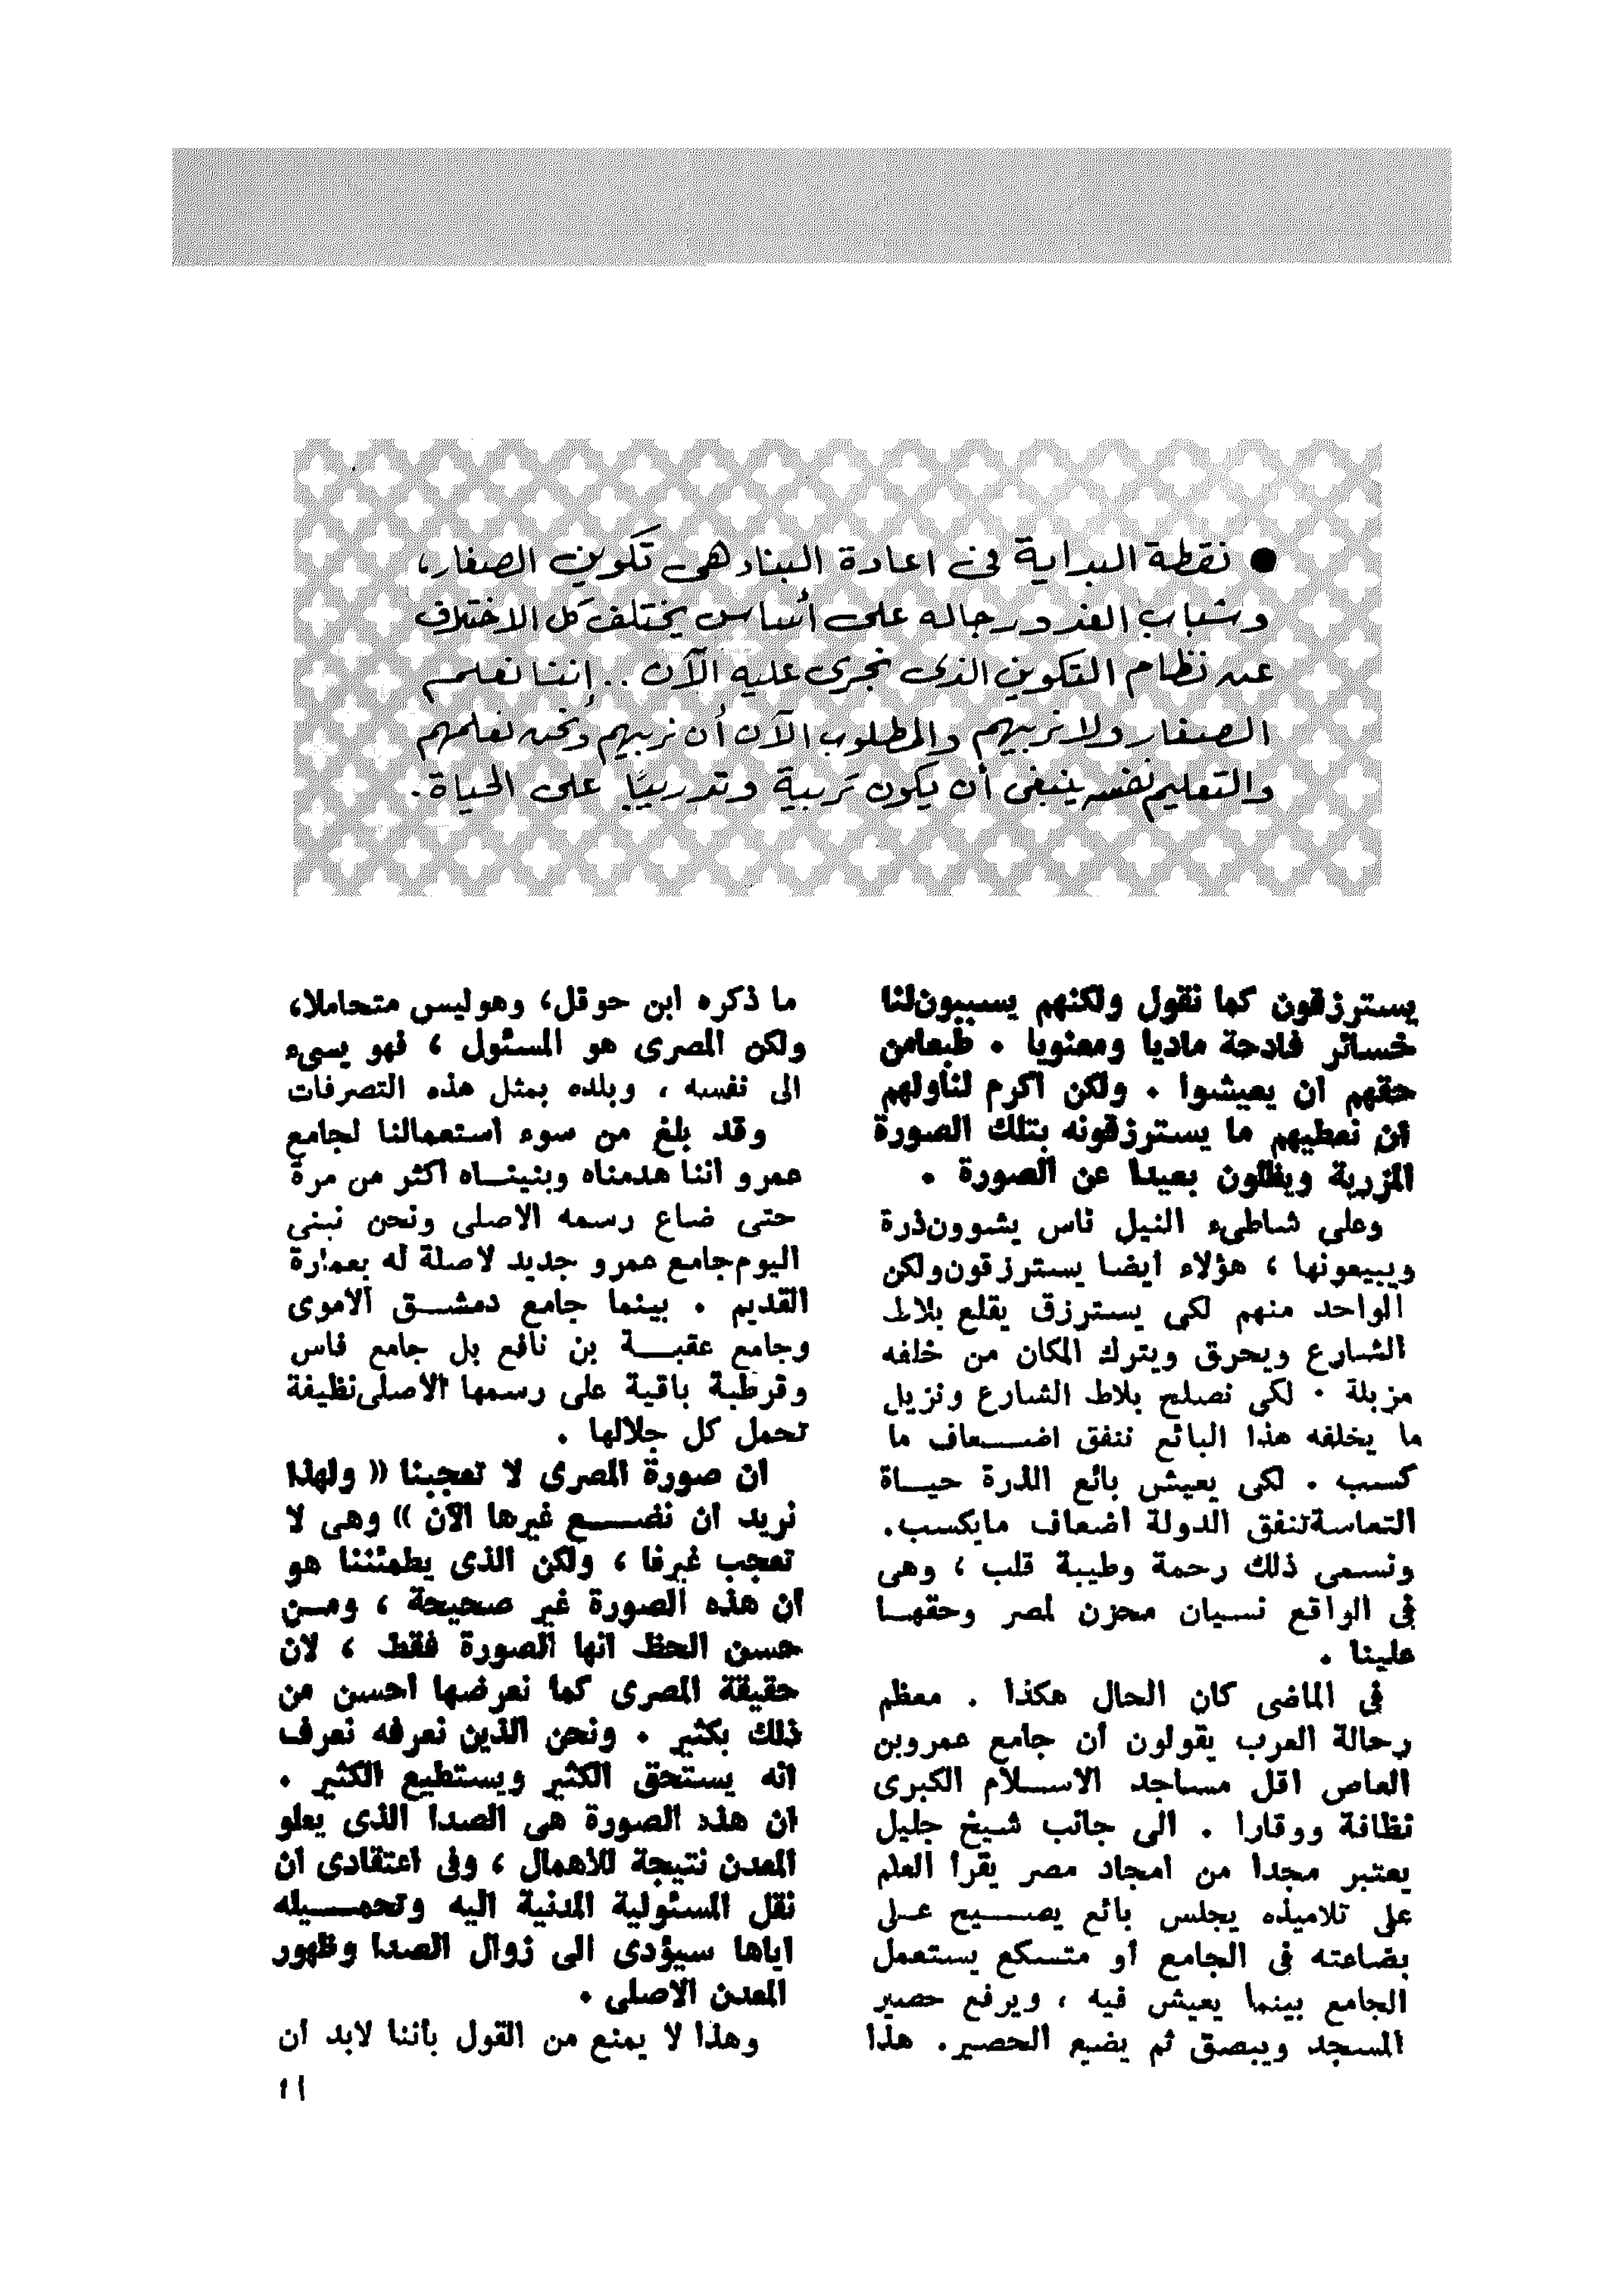 ● نقطة البداية فى اعادة البناء هى تكوين الصغار،
وشباب الغد ورجاله على أساس يختلف كل الاختلاف
عن نظام التكوين الذى نجرى عليه الآن .. إننا نعلم
الصغار ولا نربيهم والمطلوب الآن أن نربيهم ونحن نعلمهم
والتعليم نفسه ينبغى أن يكون تربية وتدريبًا على الحياة .
يسترزقون كما نقول ولكنهم يسببون لنا
خسائر فادحة ماديا ومعنويا . طبعا من
حقهم ان يعيشوا . ولكن اكرم لنا ولهم
ان نعطيهم ما يسترزقونه بتلك الصورة
المزرية ويظلون بعيدا عن الصورة .
وعلى شاطىء النيل ناس يشوون ذرة
ويبيعونها ، هؤلاء أيضا يسترزقون ولكن
الواحد منهم لكى يسترزق يقلع بلاط
الشارع ويحرق ويترك المكان من خلفه
مزبلة . لكى نصلح بلاط الشارع ونزيل
ما يخلفه هذا البائع ننفق اضعاف ما
كسب . لكى يعيش بائع الذرة حياة
التعاسة تنفق الدولة اضعاف مايكسب.
ونسمى ذلك رحمة وطيبة قلب ، وهى
فى الواقع نسيان محزن لمصر وحقها
علينا .
فى الماضى كان الحال هكذا . معظم
رحالة العرب يقولون أن جامع عمرو بن
العاص اقل مساجد الاسلام الكبرى
نظافة ووقارا . الى جانب شيخ جليل
يعتبر مجدا من امجاد مصر يقرأ العلم
على تلاميذه يجلس بائع يصيح على
بضاعته فى الجامع أو متسكع يستعمل
الجامع بينما يعيش فيه ، ويرفع حصير
المسجد ويبصق ثم يضع الحصير. هذا
ما ذكره ابن حوقل، وهو ليس متحاملا،
ولكن المصرى هو المسئول ، فهو يسىء
الى نفسه ، وبلده بمثل هذه التصرفات
وقد بلغ من سوء استعمالنا لجامع
عمرو اننا هدمناه وبنيناه اكثر من مرة
حتى ضاع رسمه الاصلى ونحن نبنى
اليوم جامع عمرو جديد لاصلة له بعمارة
القديم . بينما جامع دمشق الأموى
وجامع عقبة بن نافع بل جامع فاس
وقرطبة باقية على رسمها الاصلى نظيفة
تحمل كل جلالها .
ان صورة المصرى لا تعجبنا « ولهذا
نريد ان نضع غيرها الآن » وهى لا
تعجب غيرنا ، ولكن الذى يطمئننا هو
ان هذه الصورة غير صحيحة ، ومن
حسن الحظ انها الصورة فقط ، لان
حقيقة المصرى كما نعرضها احسن من
ذلك بكثير . ونحن الذين نعرفه نعرف
انه يستحق الكثير ويستطيع الكثير .
ان هذه الصورة هى الصدا الذى يعلو
المعدن نتيجة للاهمال ، وفى اعتقادى ان
نقل المسئولية المدنية اليه وتحميله
اياها سيؤدى الى زوال الصدا وظهور
المعدن الاصلى .
وهذا لا يمنع من القول بأننا لابد أن